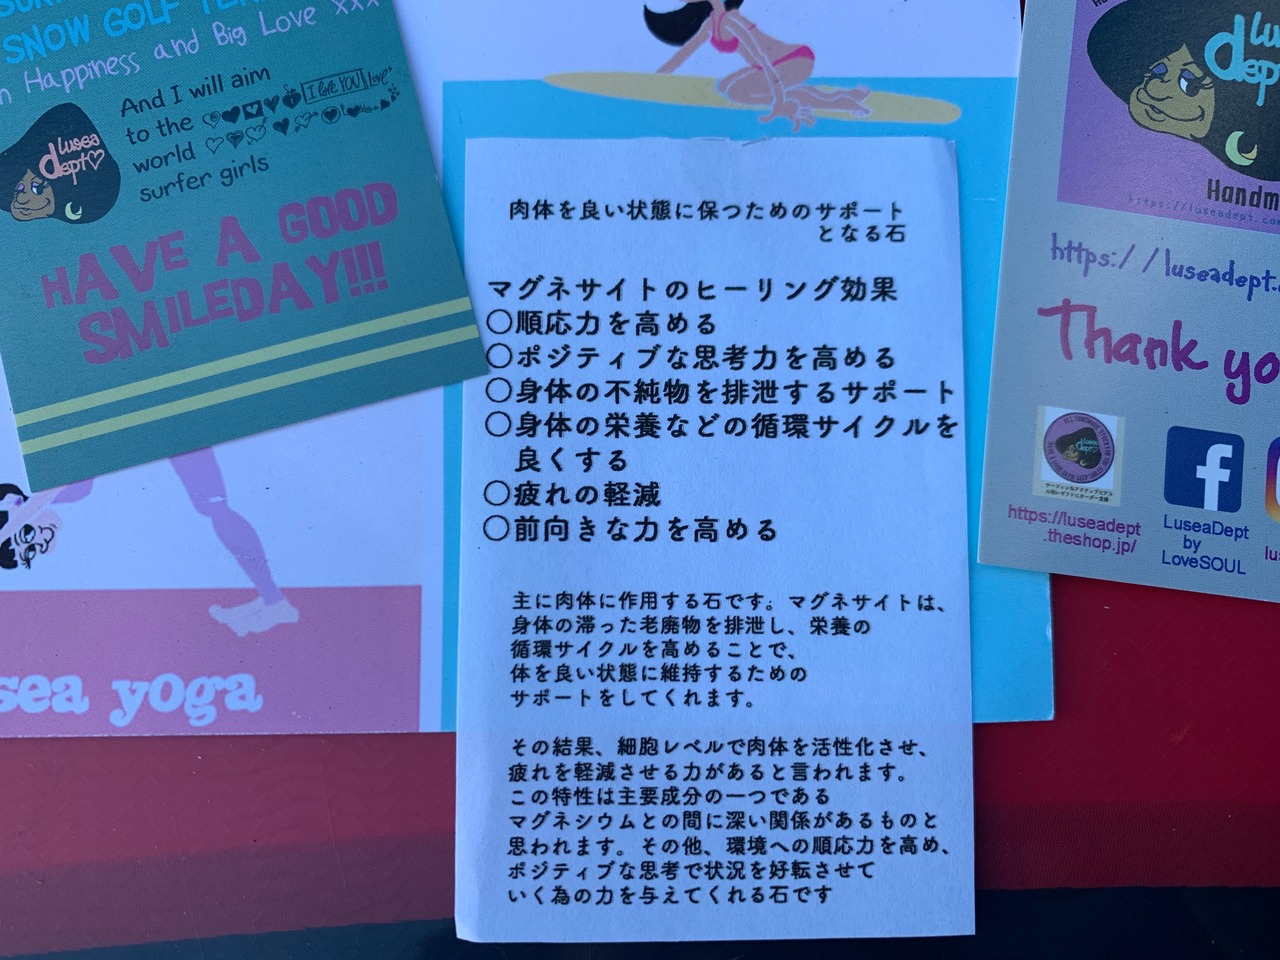 SNOW GOLF
Happiness and Big Love xxx
And I will aim
to the I love YOU Love
world
surfer girls
lusea
dept
HAVE A GOOD
SMILEDAY!!!
sea yoga
肉体を良い状態に保つためのサポート
となる石
マグネサイトのヒーリング効果
○順応力を高める
○ポジティブな思考力を高める
○身体の不純物を排泄するサポート
○身体の栄養などの循環サイクルを
良くする
○疲れの軽減
○前向きな力を高める
主に肉体に作用する石です。マグネサイトは、
身体の滞った老廃物を排泄し、栄養の
循環サイクルを高めることで、
体を良い状態に維持するための
サポートをしてくれます。
その結果、細胞レベルで肉体を活性化させ、
疲れを軽減させる力があると言われます。
この特性は主要成分の一つである
マグネシウムとの間に深い関係があるものと
思われます。その他、環境への順応力を高め、
ポジティブな思考で状況を好転させて
いく為の力を与えてくれる石です
Handm
https://luseadept.co
https://luseadept.
Thank yo
https://luseadept
.theshop.jp/
LuseaDept
by
LoveSOUL